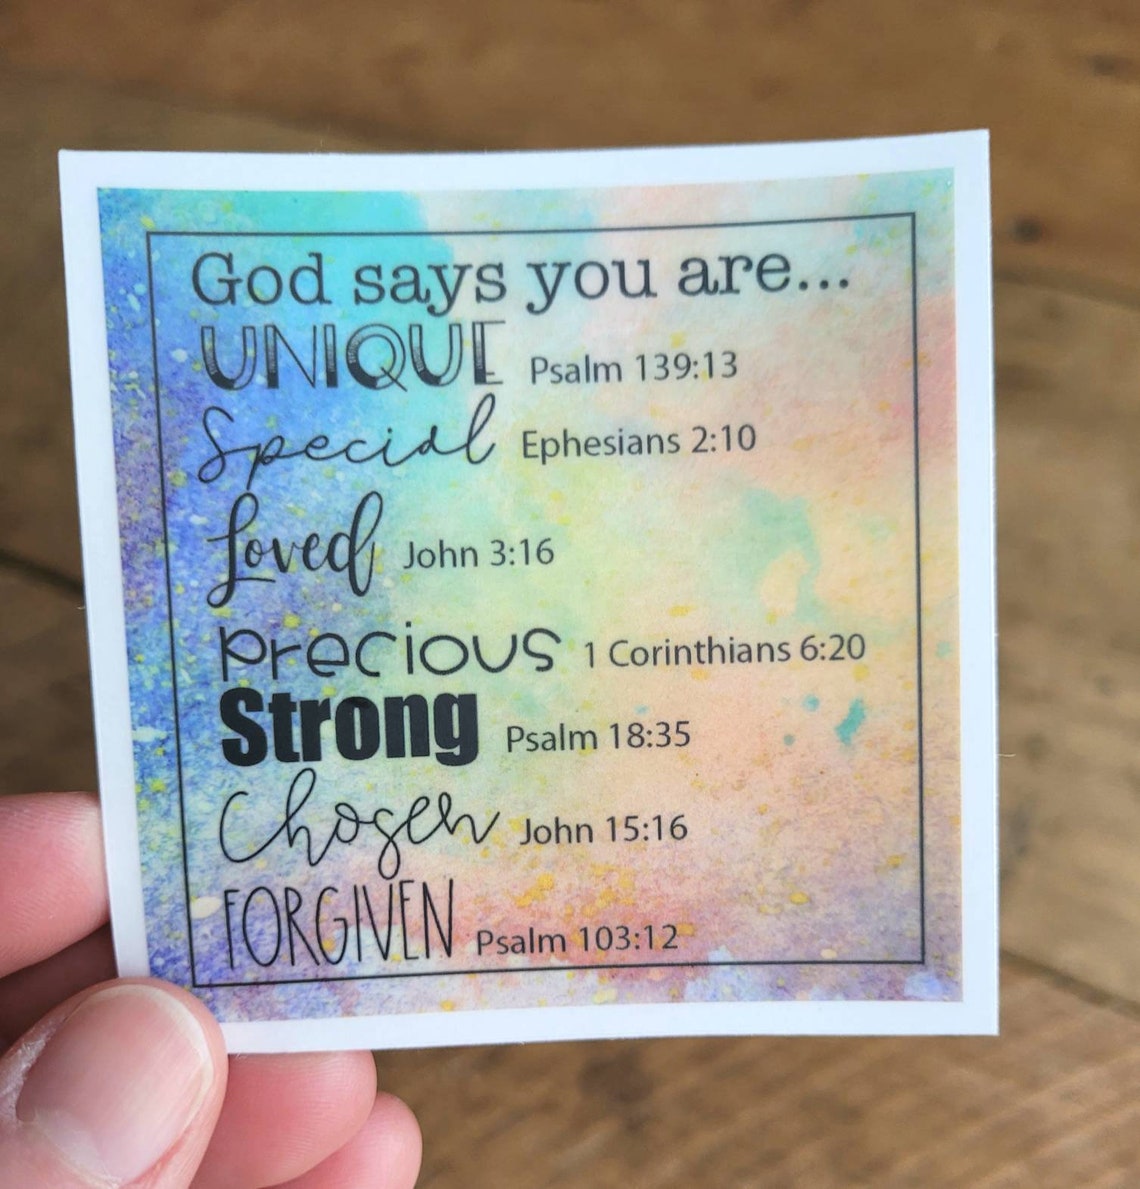 God says you are...
UNIQUE Psalm 139:13
Special Ephesians 2:10
Loved John 3:16
precious 1 Corinthians 6:20
Strong Psalm 18:35
Chosen John 15:16
FORGIVEN Psalm 103:12